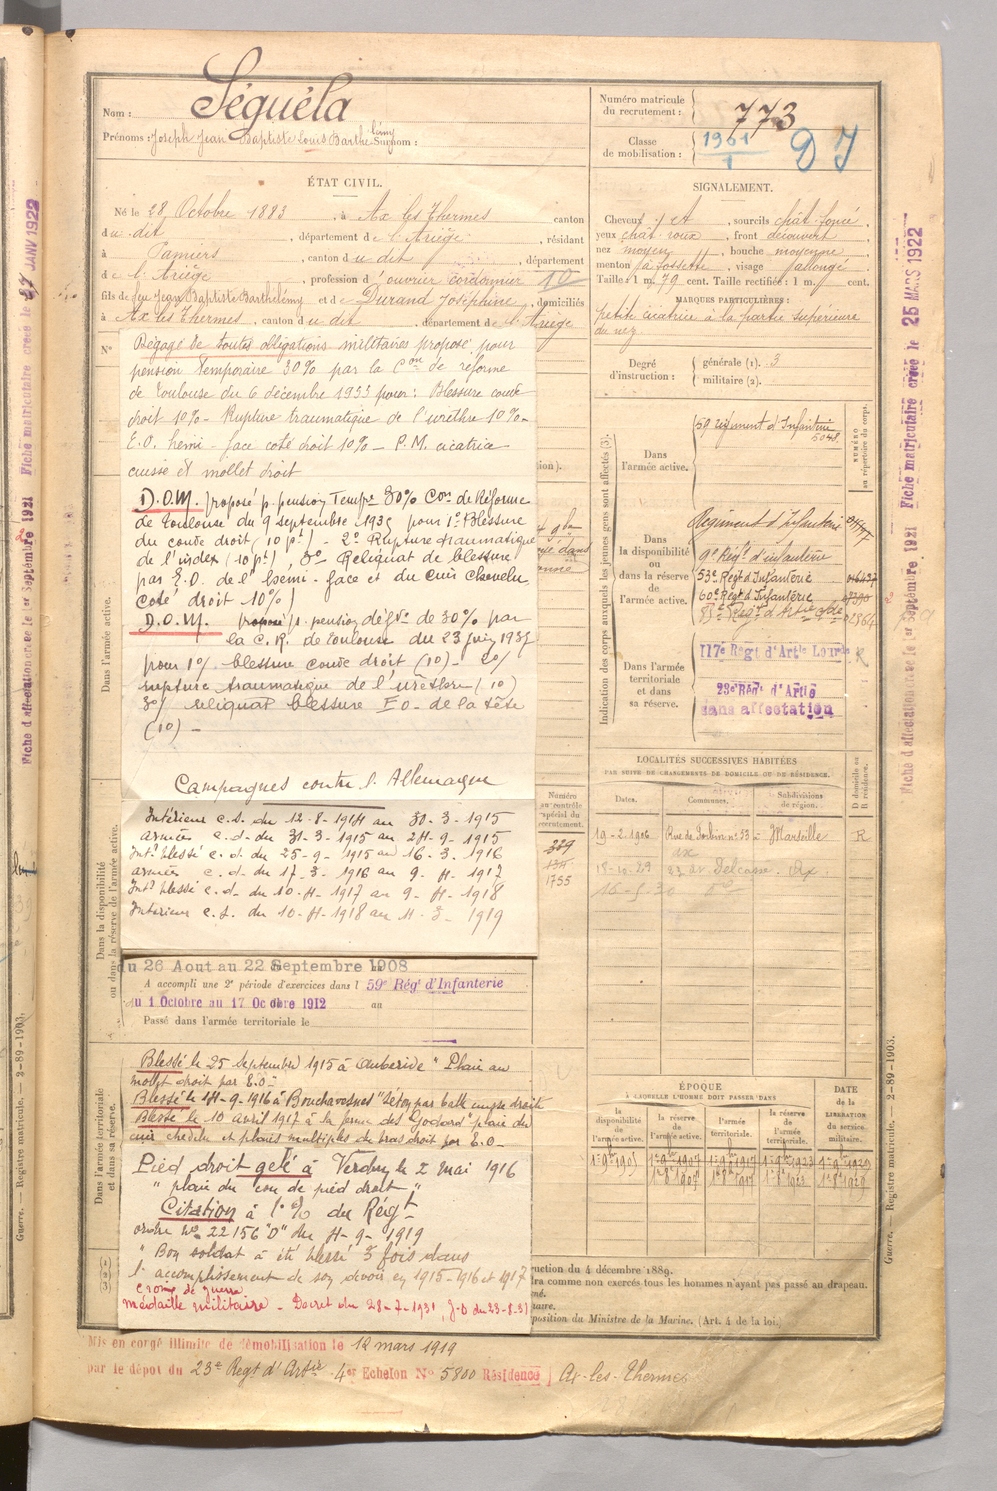 Nom : Séguéla
Prénoms : Joseph Jean Baptiste Louis Barthélémy Surnom :
Numéro matricule du recrutement : 773
Classe de mobilisation : 1901
ÉTAT CIVIL.
Né le 28 Octobre 1883, à Ax les Thermes canton
du dit, département de l'Ariège, résidant
à Pamiers, canton du dit, département
de l'Ariège, profession d'ouvrier cordonnier 10
fils de feu Jean Baptiste Barthélémy et de Durand Joséphine, domiciliés
à Ax les Thermes, canton du dit, département de l'Ariège
SIGNALEMENT.
Cheveux et sourcils chât. foncé
yeux chât. roux, front découvert
nez moyen, bouche moyenne
menton à fossette, visage allongé
Taille : 1 m. 79 cent. Taille rectifiée : 1 m. cent.
MARQUES PARTICULIÈRES :
petite cicatrice à la partie supérieure
du nez
Degré d'instruction : générale (1). 3
militaire (2).
N°
Dégagé de toutes obligations militaires proposé pour
pension temporaire 30% par la Con de réforme
de Toulouse du 6 décembre 1933 pour : Blessure coude
droit 10% - Rupture traumatique de l'urèthre 10% -
E.O. hémi-face coté droit 10% - P.M. cicatrice
cuisse et mollet droit
D.O.M. proposé p. pension Tempre 30% Con de Réforme
de Toulouse du 9 septembre 1935 pour 1° Blessure
du coude droit (10 pt) - 2° Rupture traumatique
de l'index (10 pt), 3° Reliquat de blessure
par E.O. de l'hémi-face et du cuir chevelu
coté droit 10%)
D.O.M. proposé p. pension dégve de 30% par
la C.R. de Toulouse du 23 juin 1937
pour 1°/ blessure coude droit (10) - 2°/
rupture traumatique de l'urèthre (10)
3°/ reliquat blessure E.O. de la tête
(10) -
Campagnes contre l'Allemagne
Intérieur c.s. du 12-8-1914 au 30-3-1915
armées c.d. du 31-3-1915 au 24-9-1915
Intr blessé c.d. du 25-9-1915 au 16-3-1916
armées c.d. du 17-3-1916 au 9-4-1917
Intr blessé c.d. du 10-4-1917 au 9-4-1918
Intérieur c.s. du 10-4-1918 au 11-3-1919
Indication des corps auxquels les jeunes gens sont affectés (3).
NUMÉRO au répertoire du corps.
Dans l'armée active.
59 régiment d'Infanterie
5048
Dans la disponibilité ou dans la réserve de l'armée active.
Régiment d'Infanterie
9e Régt d'infanterie
53e Régt d'Infanterie
60e Régt d'Infanterie
Dans l'armée territoriale et dans sa réserve.
117e Régt d'Artie Lourde
23e Régt d'Artie
sans affectation
LOCALITÉS SUCCESSIVES HABITÉES
PAR SUITE DE CHANGEMENTS DE DOMICILE OU DE RÉSIDENCE.
Dates. Communes. Subdivisions de région. D domicile ou R résidence.
19-2-1906 Rue de Jobin n° 33 - Marseille R
18-10-29 23 av Delcassé. Ax
16-5-30 do
Numéro au contrôle spécial du recrutement.
1755
Dans l'armée active.
Dans la disponibilité ou dans la réserve de l'armée active.
du 26 Aout au 22 Septembre 1908
A accompli une 2e période d'exercices dans l 59e Régt d'Infanterie
du 1 Octobre au 17 Octobre 1912 au
Passé dans l'armée territoriale le
Dans l'armée territoriale et dans sa réserve.
Blessé le 25 septembre 1915 à Auberive "Plaie au
mollet droit par E.O."
Blessé le 14-9-1916 à Bouchavesnes "Séton par balle cuisse droite
Blessé le 10 avril 1917 à la ferme des Godard "plaie du
cuir chevelu et plaies multiples du bras droit par E.O.
Pied droit gelé à Verdun le 2 mai 1916
" plaie du cou de pied droit "
Citation à l'o/ du Régt
ordre No 22156 "D" du 4-9-1919
" Bon soldat a été blessé 3 fois dans
l'accomplissement de son devoir en 1915-1916 et 1917
croix de guerre
médaille militaire - Décret du 28-7-1931, J.O du 23-8-31
ÉPOQUE
À LAQUELLE L'HOMME DOIT PASSER DANS
la disponibilité de l'armée active. la réserve de l'armée active. l'armée territoriale. la réserve de l'armée territoriale.
DATE de la LIBÉRATION du service militaire.
ruction du 4 décembre 1889.
dra comme non exercés tous les hommes n'ayant pas passé au drapeau.
position du Ministre de la Marine. (Art. 4 de la loi.)
Mis en congé illimité de démobilisation le 12 mars 1919
par le dépôt du 23e Régt d'Artie 4er Echelon No 5800 Résidence Ax-les-Thermes
Guerre. — Registre matricule. — 2-89-1903.
Fiche d'affectation créée le 1er Septembre 1921 Fiche matriculaire créée le 25 MARS 1922
Fiche d'affectation créée le 1er Septembre 1921 Fiche matriculaire créée le 27 JANV 1922
Guerre. — Registre matricule. — 2-89-1903.